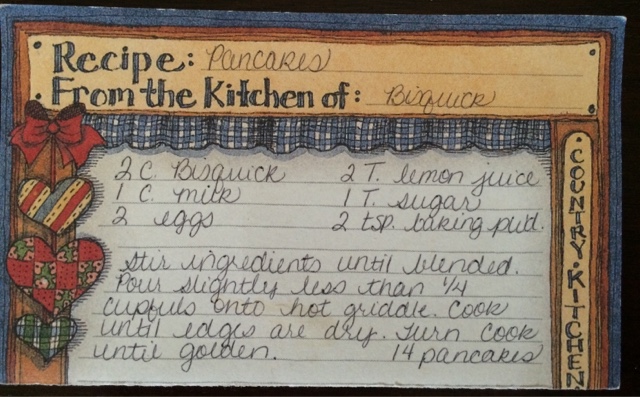 Recipe: Pancakes
From the Kitchen of: Bisquick
2 C. Bisquick 2 T. lemon juice
1 C. milk 1 T. sugar
2 eggs 2 tsp. baking pwd.
Stir ingredients until blended.
Pour slightly less than 1/4
cupfuls onto hot griddle. Cook
until edges are dry. Turn Cook
until golden. 14 pancakes
COUNTRY•KITCHEN